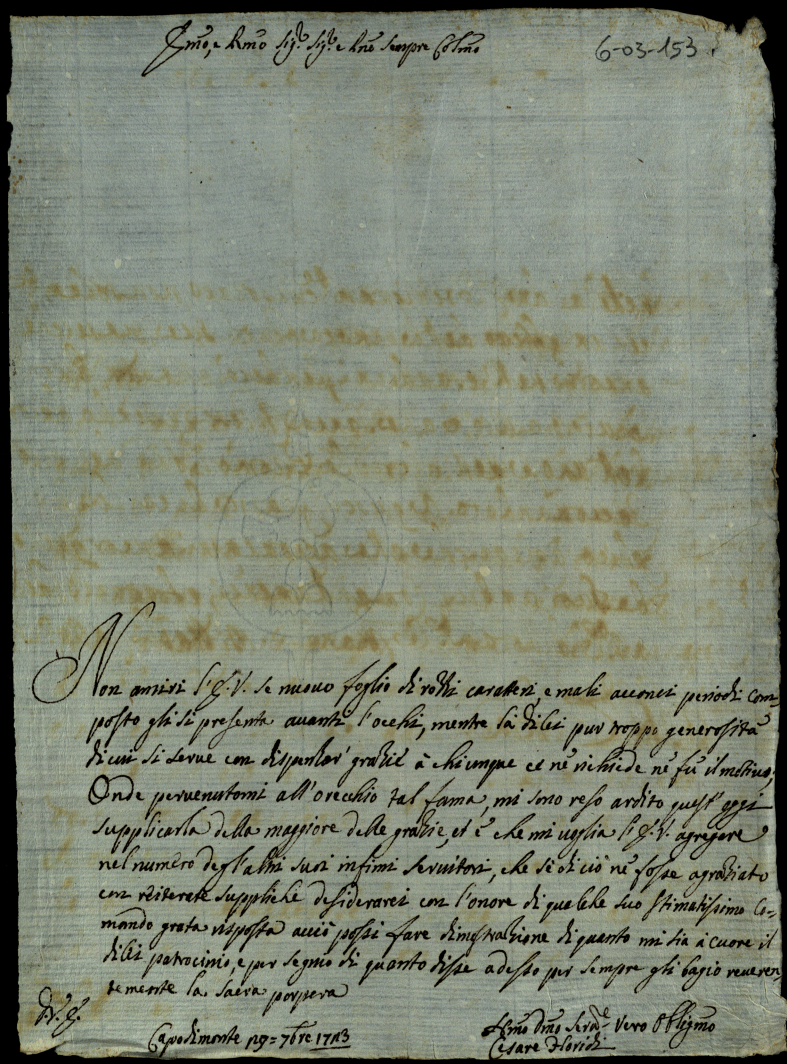 Emo, e Rmo Sigr Sigr e Pne Sempre Colmo
6-03-153
Non amiri l'E.V. se nuovo foglio di rozzi caratteri e mali acconci periodi com=
posto gli si presenta avanti l'occhi, mentre la di lei pur troppo generosità
di cui si serve con dispenzar' grazie à chiunque ce ne richiede ne fù il motivo;
Onde pervenutomi all'orecchio tal fama, mi sono reso ardito quest'oggi
supplicarla della maggiore delle grazie, et è che mi voglia l'E.V. agregare
nel numero degl'altri suoi infimi servitori, che se di ciò ne fosse agraziato
con reiterate suppliche desiderarei con l'onore di qualche suo stimatissimo Co=
mando grata risposta acciò possi fare dimostrazione di quanto mi sia à cuore il
di lei patrocinio, e per segno di quanto disse adesso per sempre gli bagio reveren=
temente la sacra porpora
D.V.E.
Capodimonte 7bre 1743
Umo Dmo Vero Obligmo
Cesare Floridi